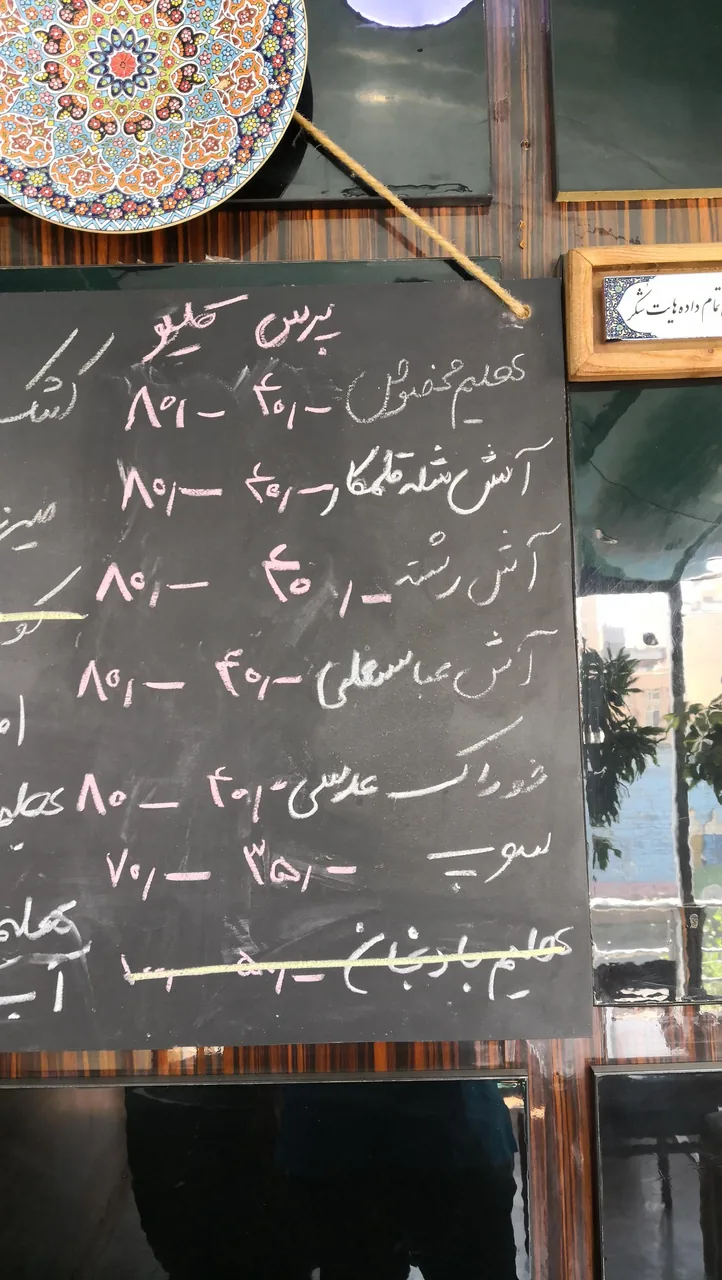 پرس کیلو
حلیم مخصوص ۴۰/- ۸۰/-
آش شله قلمکار ۴۰/- ۸۰/-
آش رشته ۴۰/- ۸۰/-
آش عباسعلی ۴۰/- ۸۰/-
خوراک عدسی ۴۰/- ۸۰-
سوپ ۳۵/- ۷۰/-
حلیم بادنجان ۵۰/- ۱۰۰/-
کشک
حلیم
حلیم
آب
تمام داده هایت شکر